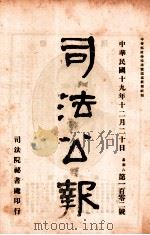 中華民國十九年十二月二十日
第一百零二號
司法公報
司法院祕書處印行